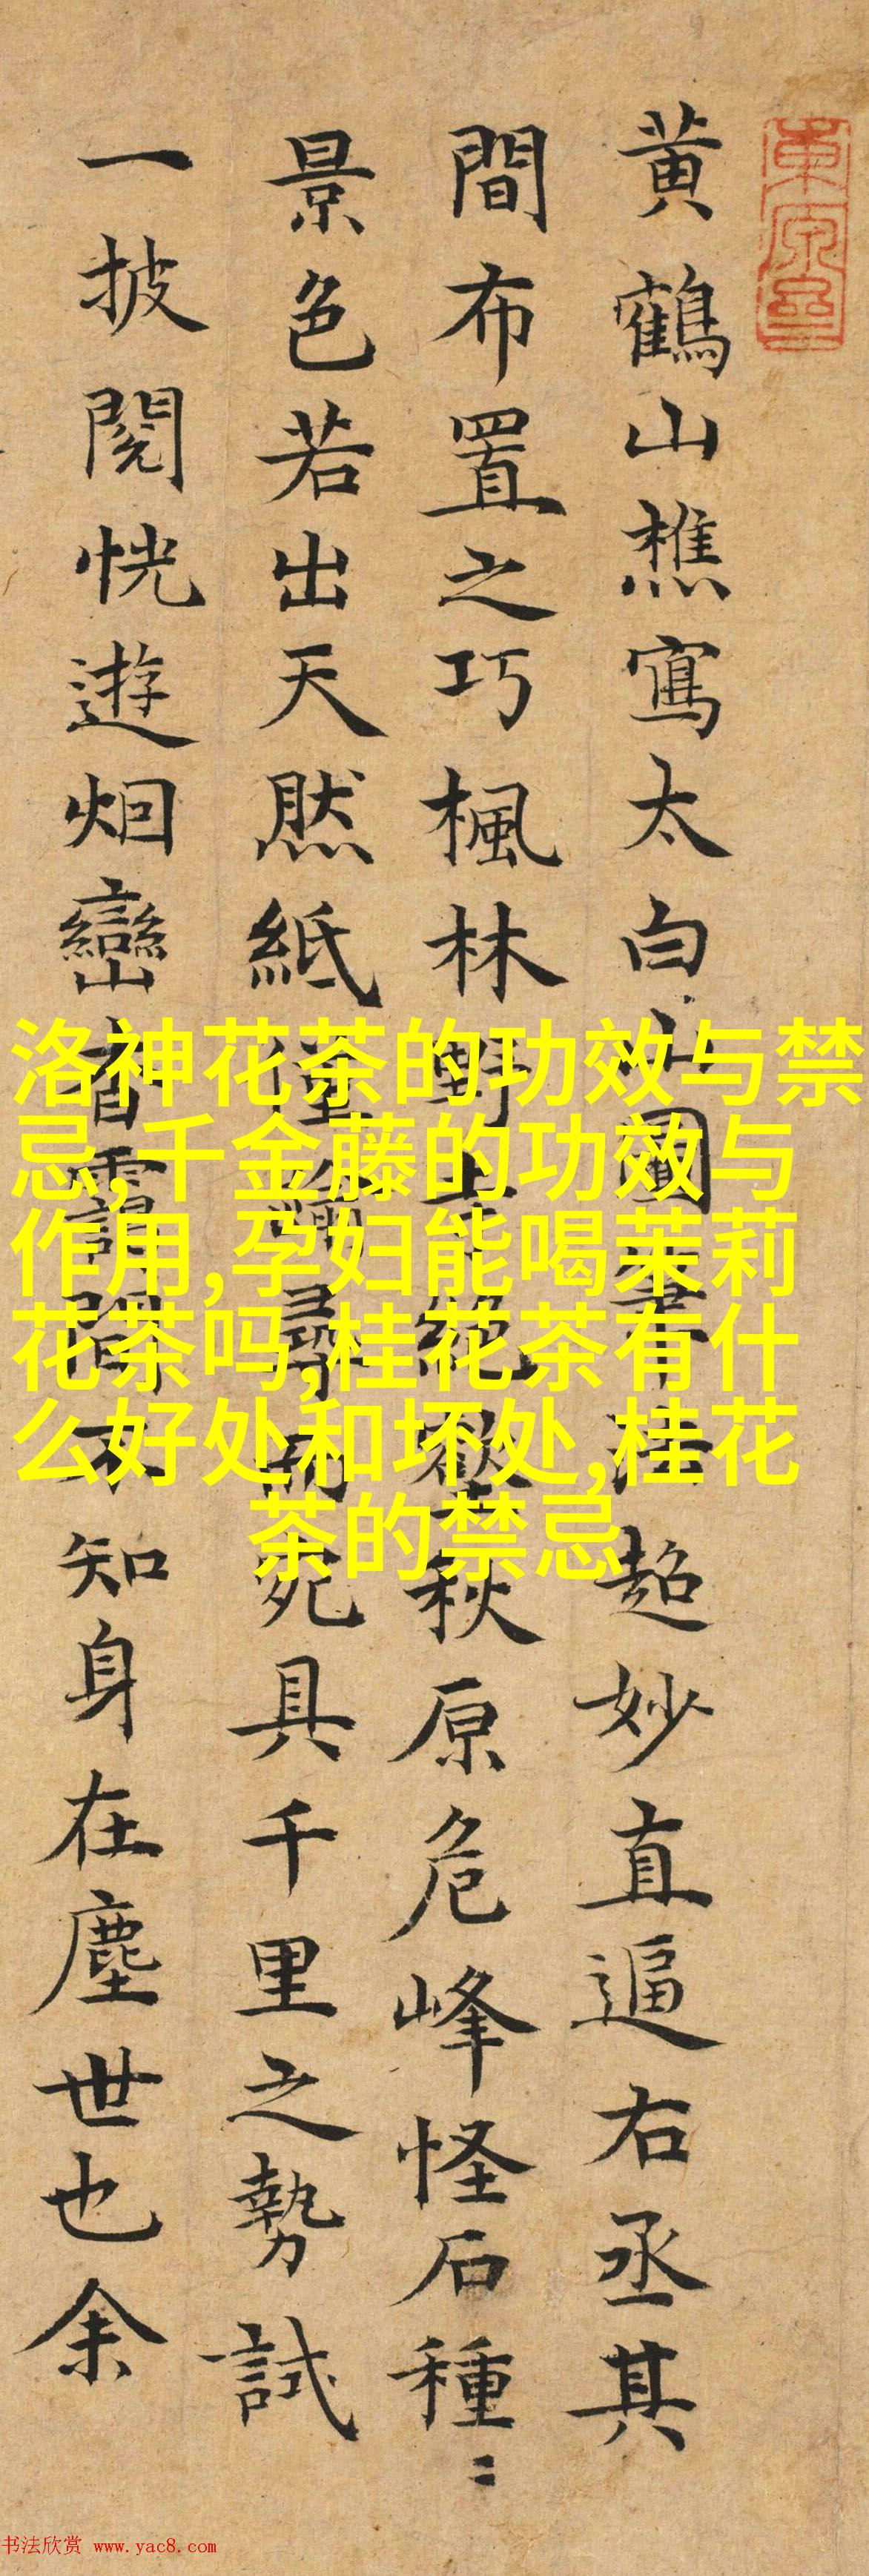 東原圖
黄鶴山樵寫太白山圖筆法超妙直逼右丞其
間布置之巧楓林野上絕歡秋原危峰怪石種〻
景色若出天然紙僅尋宛具千里之勢試
一披閱恍遊烟巒杳靄間不知身在塵世也余
洛神花茶的功效与禁
忌,千金藤的功效与
作用,孕妇能喝茉莉
花茶吗,桂花茶有什
么好处和坏处,桂花
茶的禁忌
书法欣赏 www.yac8.com